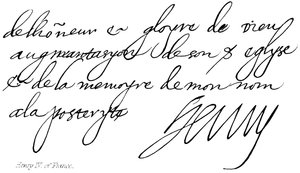 de lhoneur & gloyre de dieu
augmantasyon de son eglyse
& de la memoyre de mon nom
a la posteryte Henry
Henry IV. of France.